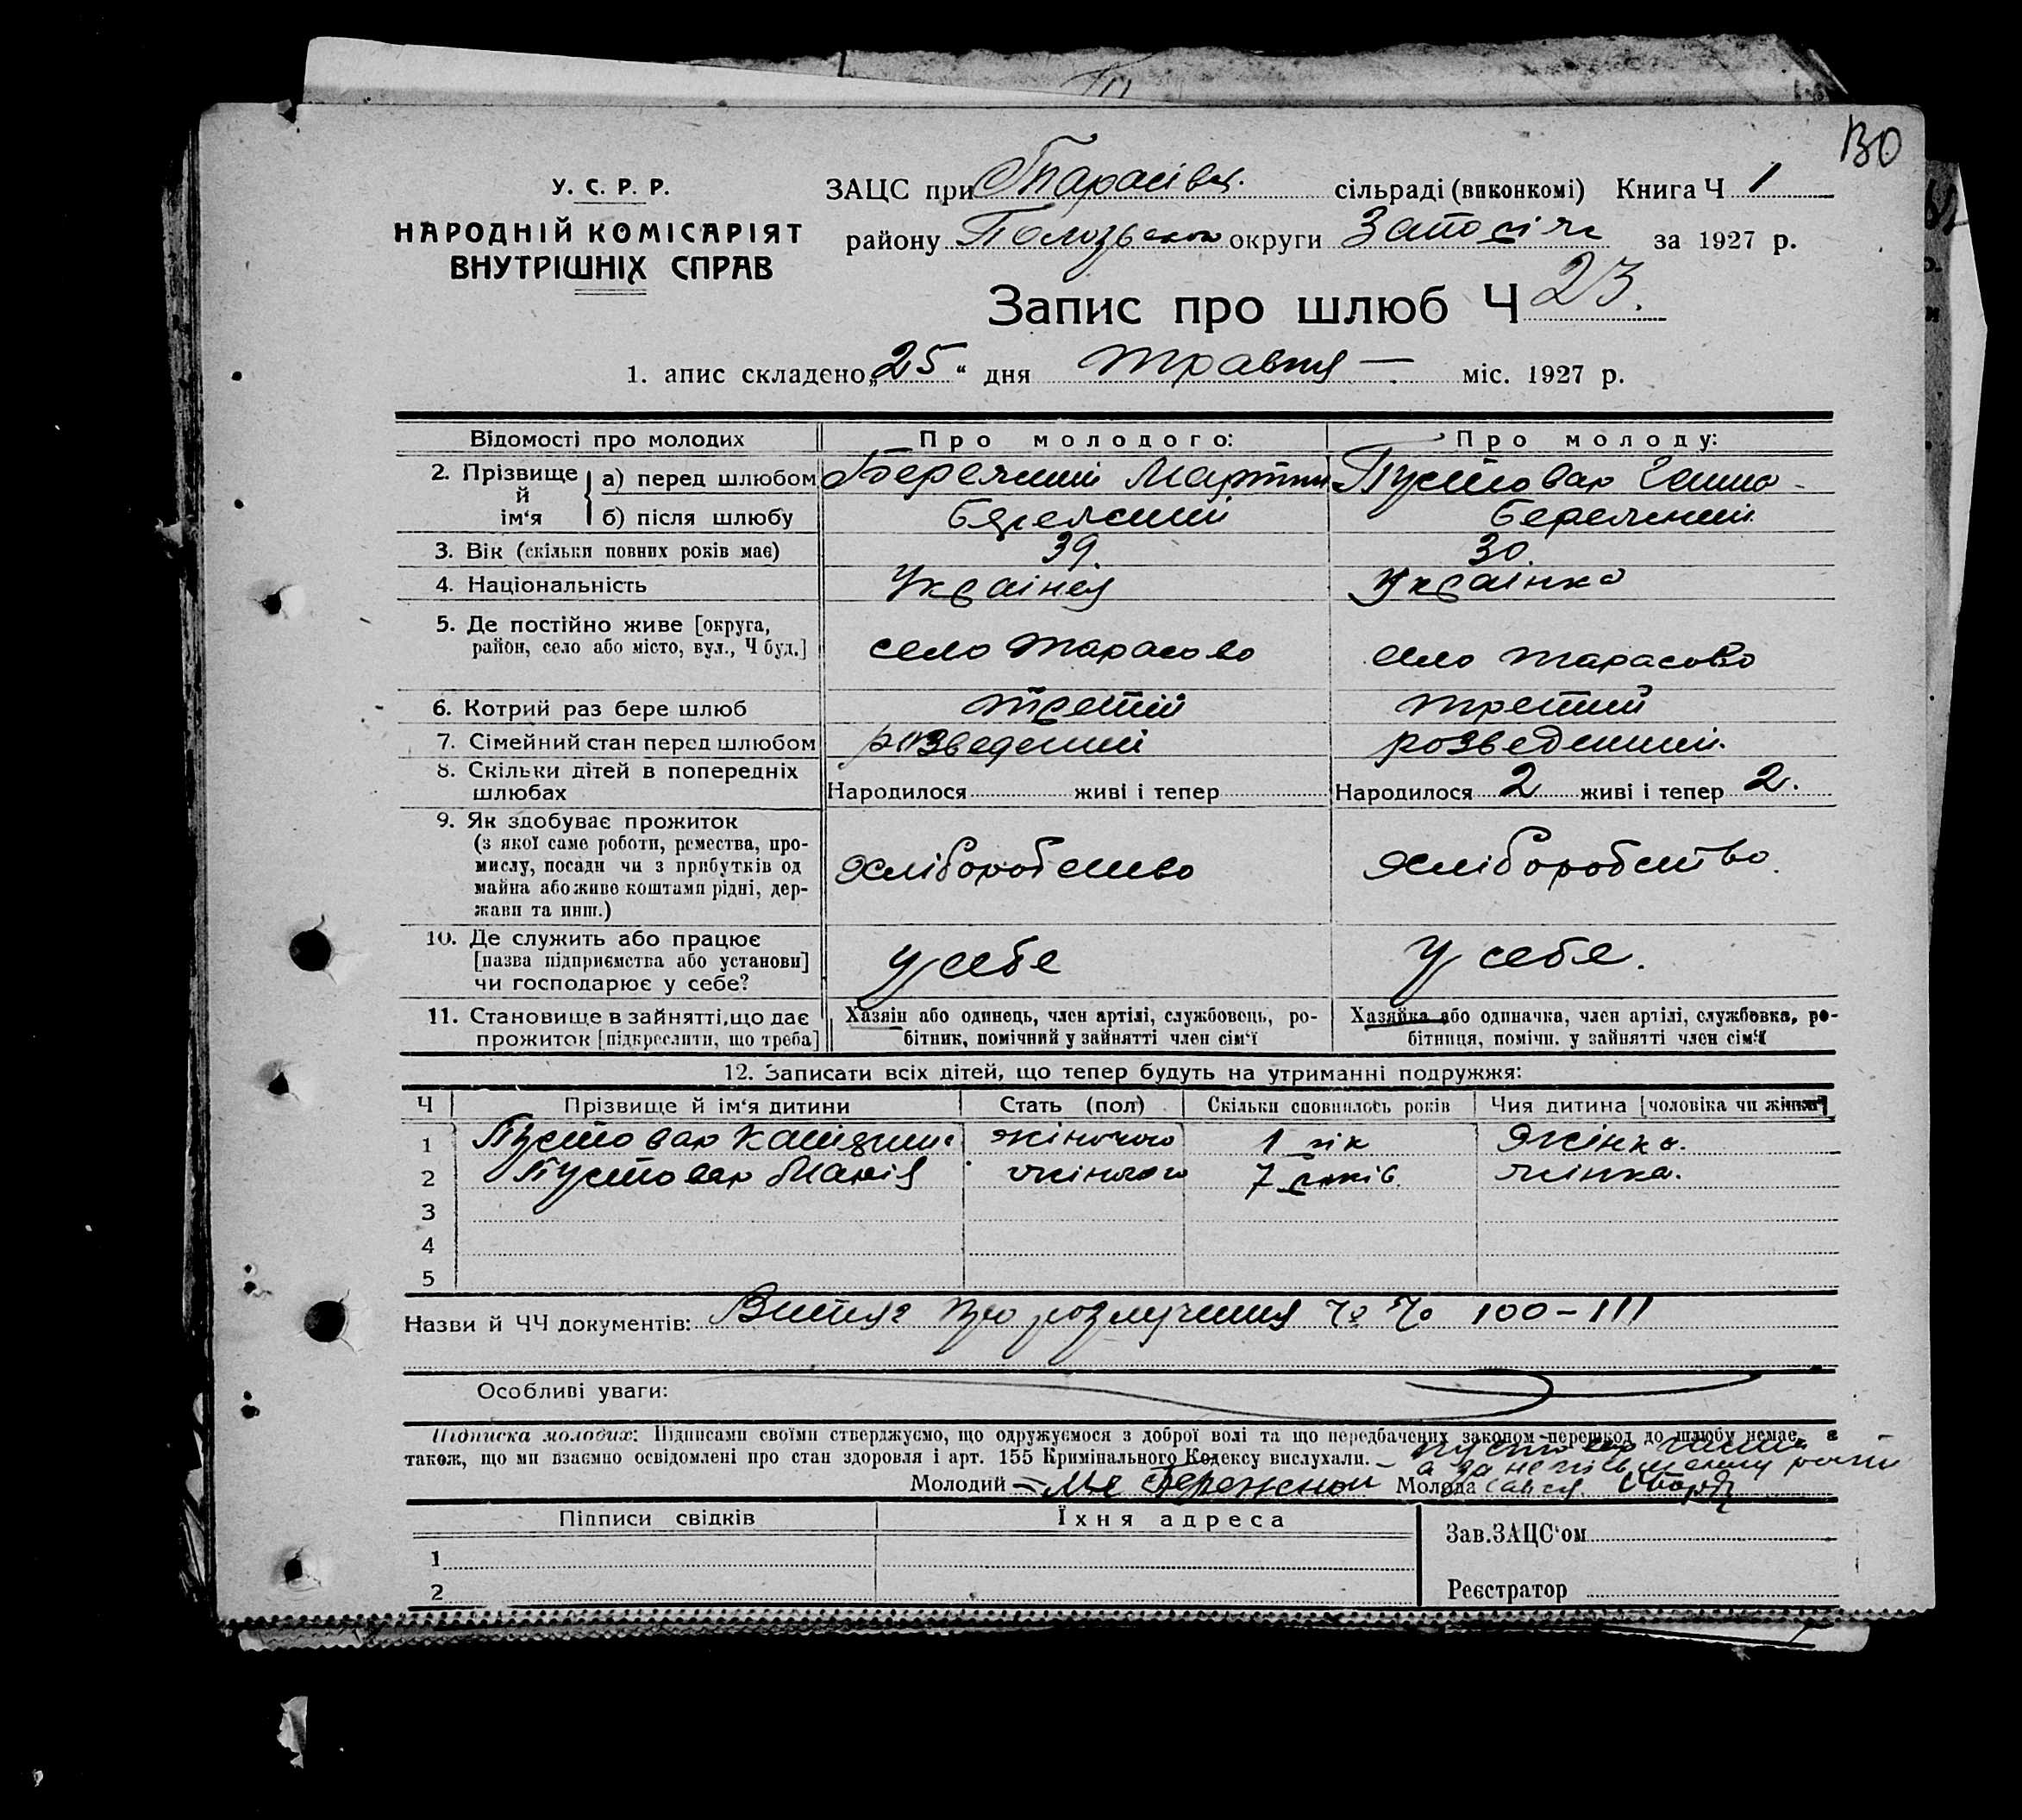 130
У. С. Р. Р.
НАРОДНІЙ КОМІСАРІЯТ
ВНУТРІШНІХ СПРАВ
ЗАЦС при Тарасівц. сільраді (виконкомі) Книга Ч 1
району Пологського округи Запоріж за 1927 р.
Запис про шлюб Ч 23.
1. апис складено „25“ дня травня — міс. 1927 р.
Відомості про молодих Про молодого: Про молоду:
2. Прізвище й ім‘я а) перед шлюбом Бережний Мартин Пустовар Ганна
б) після шлюбу Бережний Бережний
3. Вік (скільки повних років має) 39. 30.
4. Національність Українец Українка
5. Де постійно живе [округа, район, село або місто, вул., Ч буд.] село Тарасово село Тарасово
6. Котрий раз бере шлюб третій третий
7. Сімейний стан перед шлюбом розведений розведений.
8. Скільки дітей в попередніх шлюбах Народилося живі і тепер Народилося 2 живі і тепер 2.
9. Як здобуває прожиток
(з якої саме роботи, ремества, про-
мислу, посади чи з прибутків од
майна або живе коштами рідні, дер-
жави та инш.)
хліборобство хліборобство.
10. Де служить або працює
[назва підприємства або установи]
чи господарює у себе?
у себе у себе.
11. Становище в зайнятті, що дає
прожиток [підкреслити, що треба]
Хазяін або одинець, член артілі, службовець, ро-
бітник, помічний у зайнятті член сім‘ї
Хазяйка або одиначка, член артілі, службовка, ро-
бітниця, помічн. у зайнятті член сім‘ї
12. Записати всіх дітей, що тепер будуть на утриманні подружжя:
Ч Прізвище й ім‘я дитини Стать (пол) Скільки сповнилось років Чия дитина [чоловіка чи жінки]
1 Пустовар жіночого 1 рік жінка.
2 Пустовар Марія жіночого 7 років. жінка.
3
4
5
Назви й ЧЧ документів: Витяг про розлучення 100-111
Особливі уваги:
Підписка молодих: Підписами своїми стверджуємо, що одружуємося з доброї волі та що передбачених законом перешкод до шлюбу немає, а
також, що ми взаємно освідомлені про стан здоровля і арт. 155 Кримінального Кодексу вислухали.
Пустовар Ганна
Молодий Бережной Молода
Підписи свідків Їхня адреса
1
2
Зав.ЗАЦС‘ом
Реєстратор